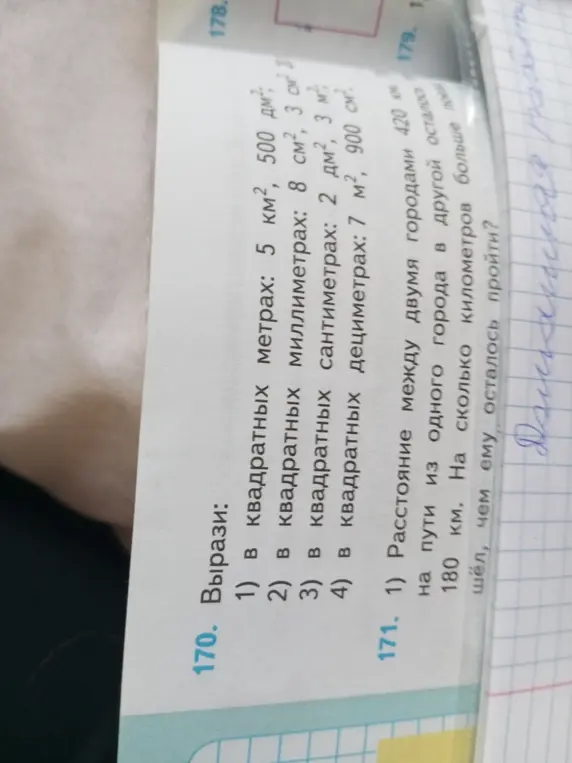 178.
170. Вырази:
1) в квадратных метрах: 5 км², 500 дм²;
2) в квадратных миллиметрах: 8 см², 3 см²
3) в квадратных сантиметрах: 2 дм², 3 м²;
4) в квадратных дециметрах: 7 м², 900 см².
179.
171. 1) Расстояние между двумя городами 420 км
на пути из одного города в другой осталось
180 км. На сколько километров больше
шёл, чем ему осталось пройти?